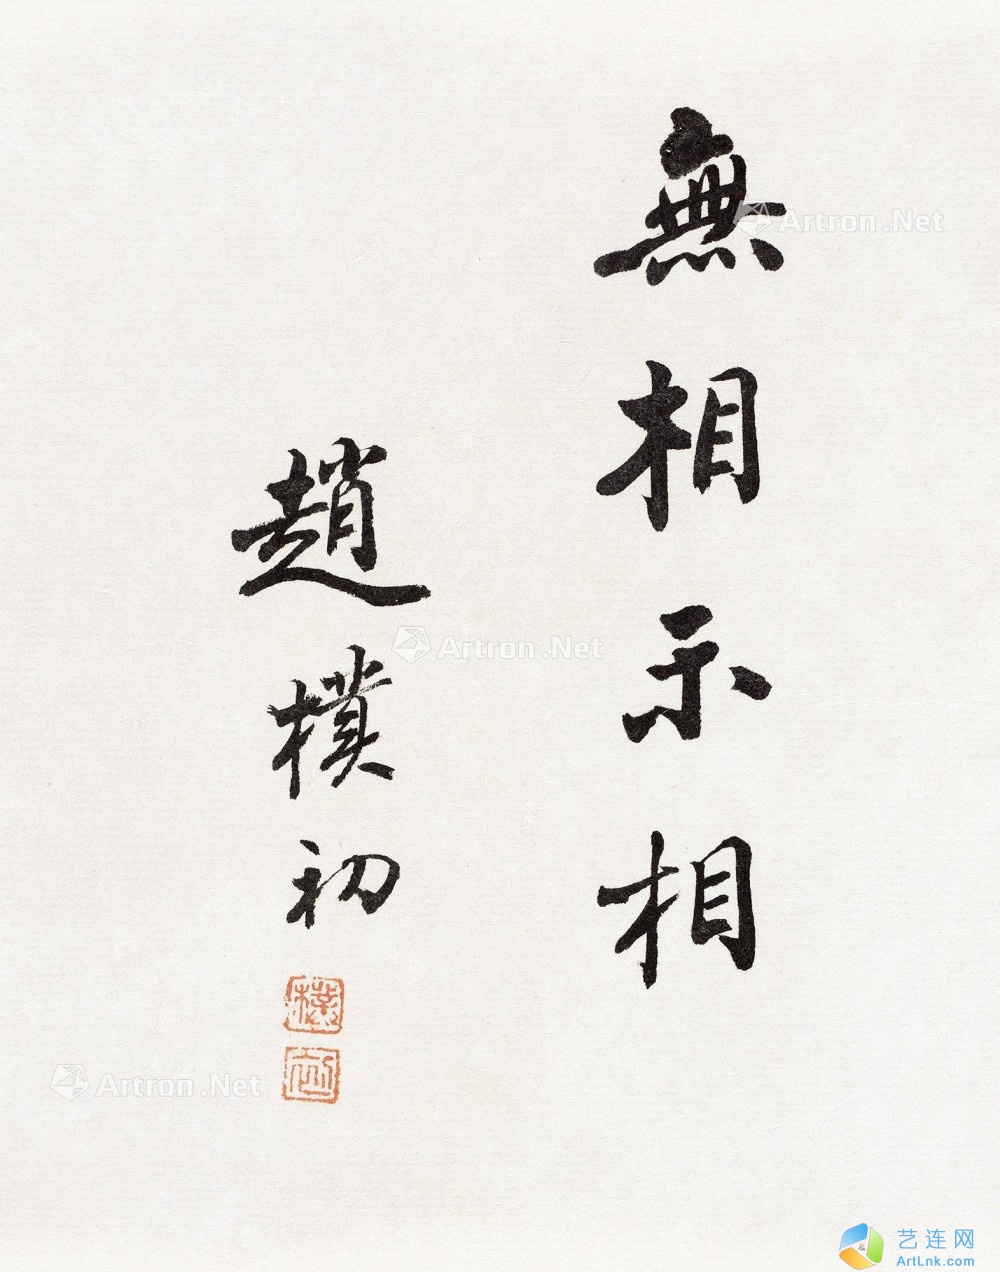 無相示相
趙樸初
樸
初
Artron.Net
Artron.Net
Artron.Net
艺连网
ArtLnk.com